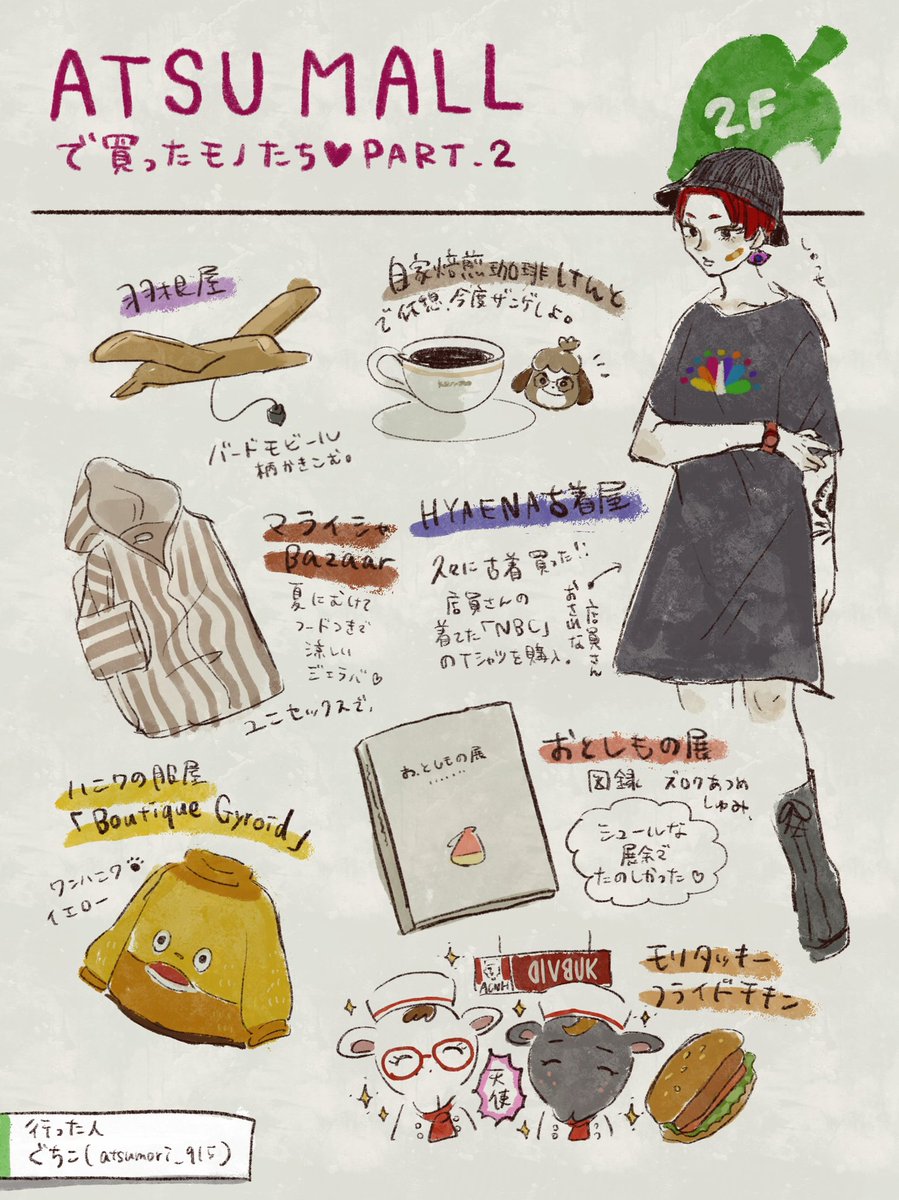 ATSU MALL
で買ったモノたち♥PART.2
2F
羽根屋
バードモビール
柄かきこむ。
自家焙煎珈琲けんと
で仮想、今度ザンゲしよ。
しゅっせー
マライシャ
Bazaar
夏にむけて
フードつきで
涼しい
ジェラバ♡
ユニセックスで、
HYAENA古着屋
久々に古着買った!!
店員さんの
着てた「NBC」
のTシャツを購入。
おされな
店員さん
ハニワの服屋
「Boutique Gyroid」
ワンハニワ
イエロー
おとしもの展
おとしもの展
図録 ズロクあつめ
しゅみ、
シュールな
展示で
たのしかった♡
モリタッキー
フライドモキン
ACNH
DIVBUK
天使
行った人
ぐちこ(atsumori_915)